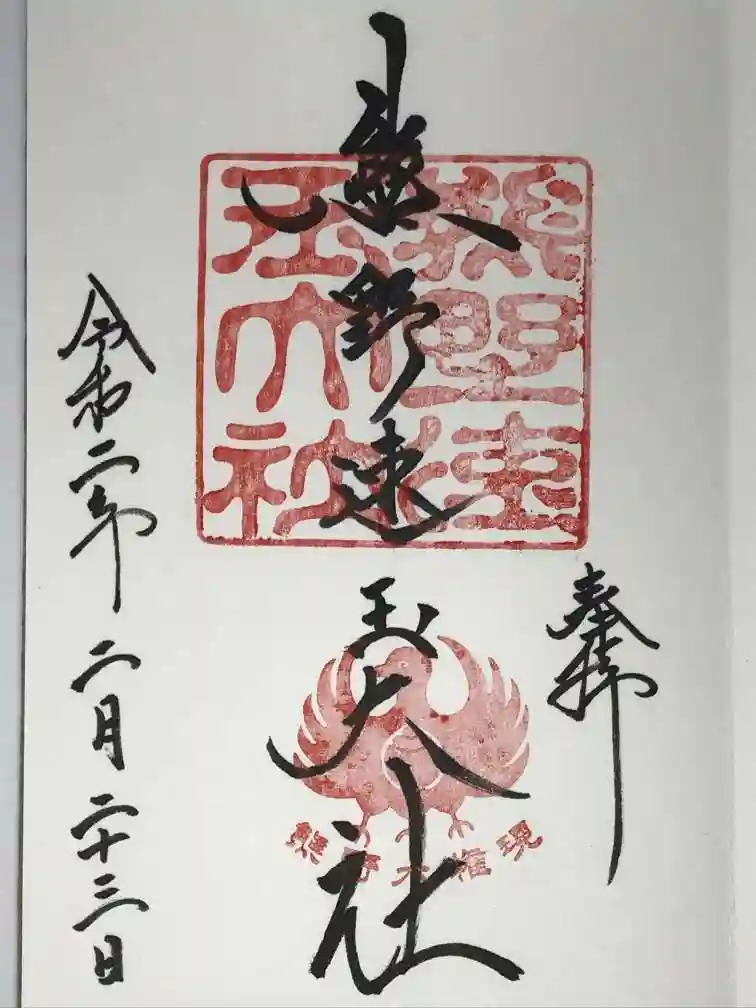 奉拝
熊野速玉大社
熊野速玉大社
熊野大権現
令和二年二月二十三日